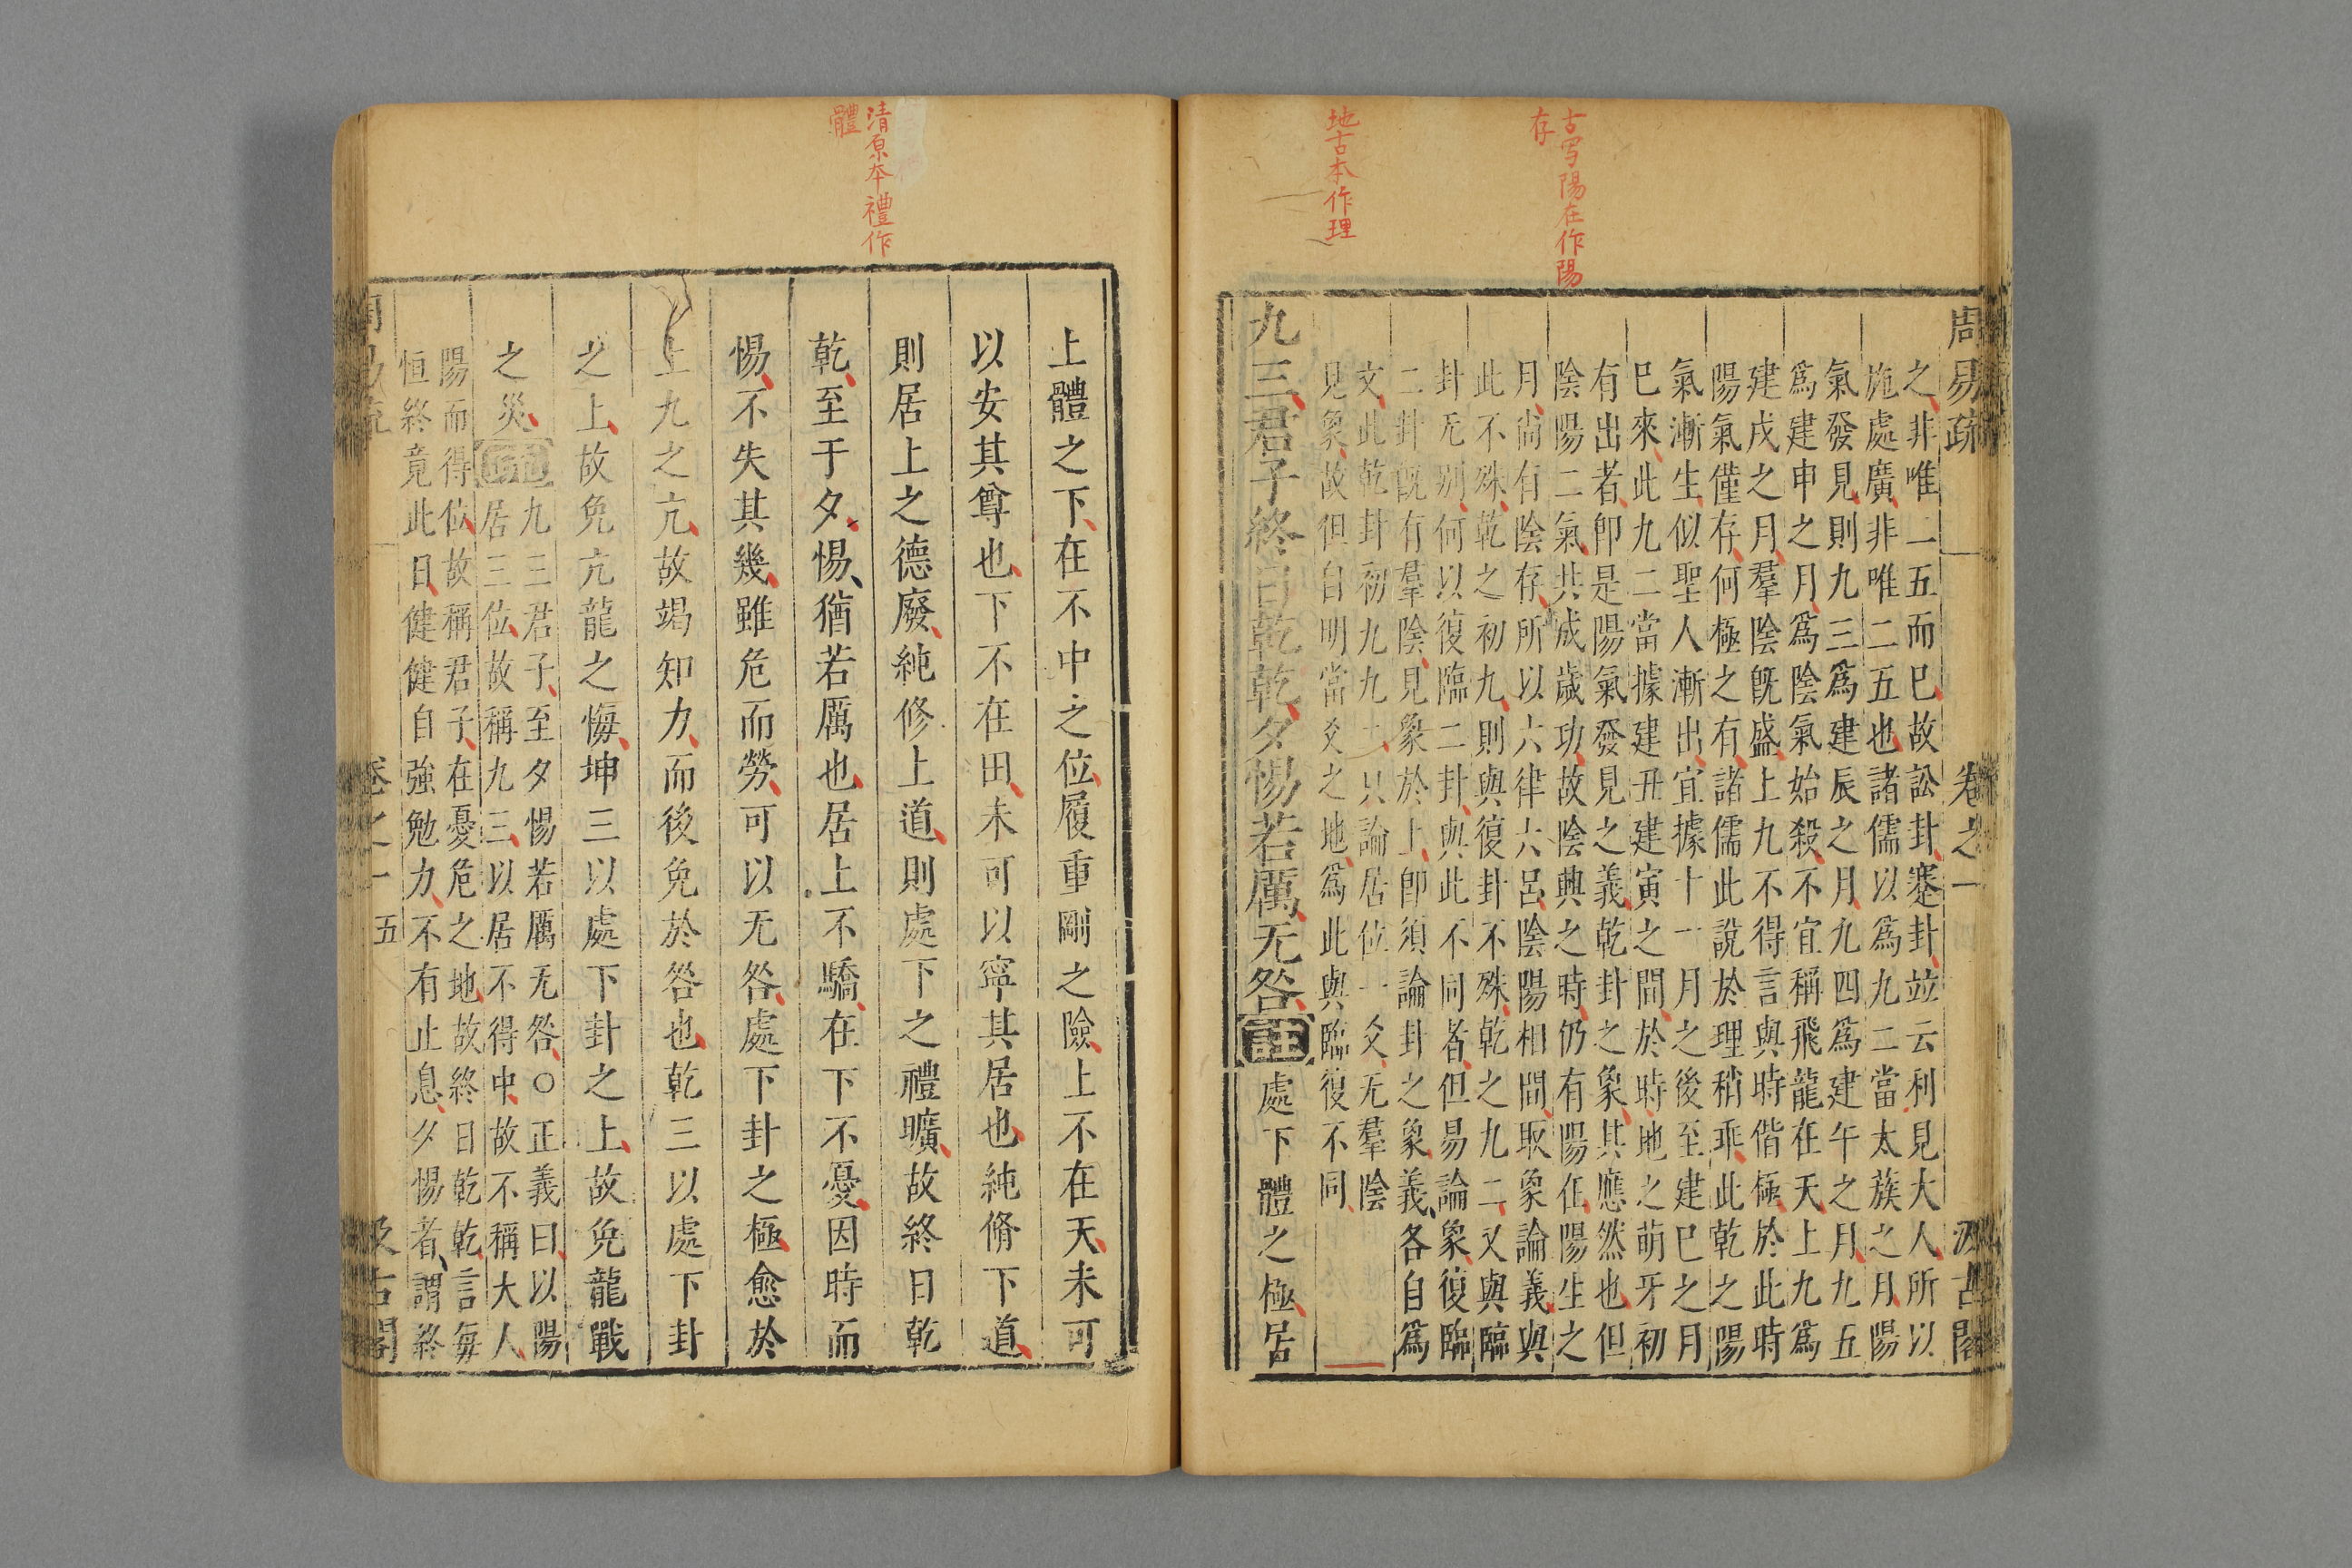 古写陽在作陽
存
地古本作理
周易疏 卷之一 汲古閣
之非唯二五而已故訟卦蹇卦竝云利見大人所以
施處廣非唯二五也諸儒以爲九二當太蔟之月陽
氣發見則九三爲建辰之月九四爲建午之月九五
爲建申之月爲陰氣始殺不宜稱飛龍在天上九爲
建戌之月羣陰旣盛上九不得言與時偕極於此時
陽氣僅存何極之有諸儒此說於理稍乖此乾之陽
氣漸生似聖人漸出宜據十一月之後至建巳之月
巳來此九二當據建丑建寅之間於時地之萌牙初
有出者卽是陽氣發見之義乾卦之象其應然也但
陰陽二氣共成歲功故陰興之時仍有陽在陽生之
月尙有陰存所以六律六呂陰陽相間取象論義與
此不殊乾之初九則與復卦不殊乾之九二又與臨
卦无別何以復臨二卦與此不同者但易論象復臨
二卦旣有羣陰見象於上卽須論卦之象義各自爲
文此乾卦初九九二只論居位一爻无羣陰
見象故但自明當爻之地爲此與臨復不同
九三君子終日乾乾夕惕若厲无咎註處下體之極居
清原本禮作
體
上體之下在不中之位履重剛之險上不在天未可
以安其尊也下不在田未可以寧其居也純脩下道
則居上之德廢純修上道則處下之禮曠故終日乾
乾至于夕惕猶若厲也居上不驕在下不憂因時而
惕不失其幾雖危而勞可以无咎處下卦之極愈於
上九之亢故竭知力而後免於咎也乾三以處下卦
之上故免亢龍之悔坤三以處下卦之上故免龍戰
之災疏九三君子至夕惕若厲无咎○正義曰以陽
居三位故稱九三以居不得中故不稱大人
陽而得位故稱君子在憂危之地故終日乾乾言每
恒終竟此日健健自強勉力不有止息夕惕者謂終
周易疏 卷之一 五 汲古閣